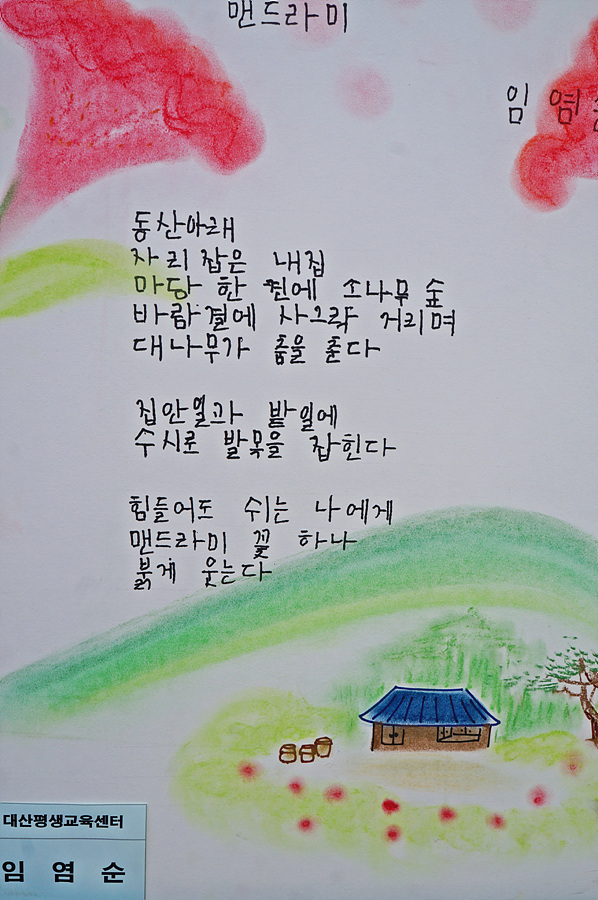 맨드라미
임 염
동산아래
자리 잡은 내집
마당 한 켠에 소나무 숲
바람결에 사그락 거리며
대나무가 춤을 춘다
집안일과 밭일에
수시로 발목을 잡힌다
힘들어도 쉬는 나에게
맨드라미 꽃 하나
붉게 웃는다
대산평생교육센터
임 염 순